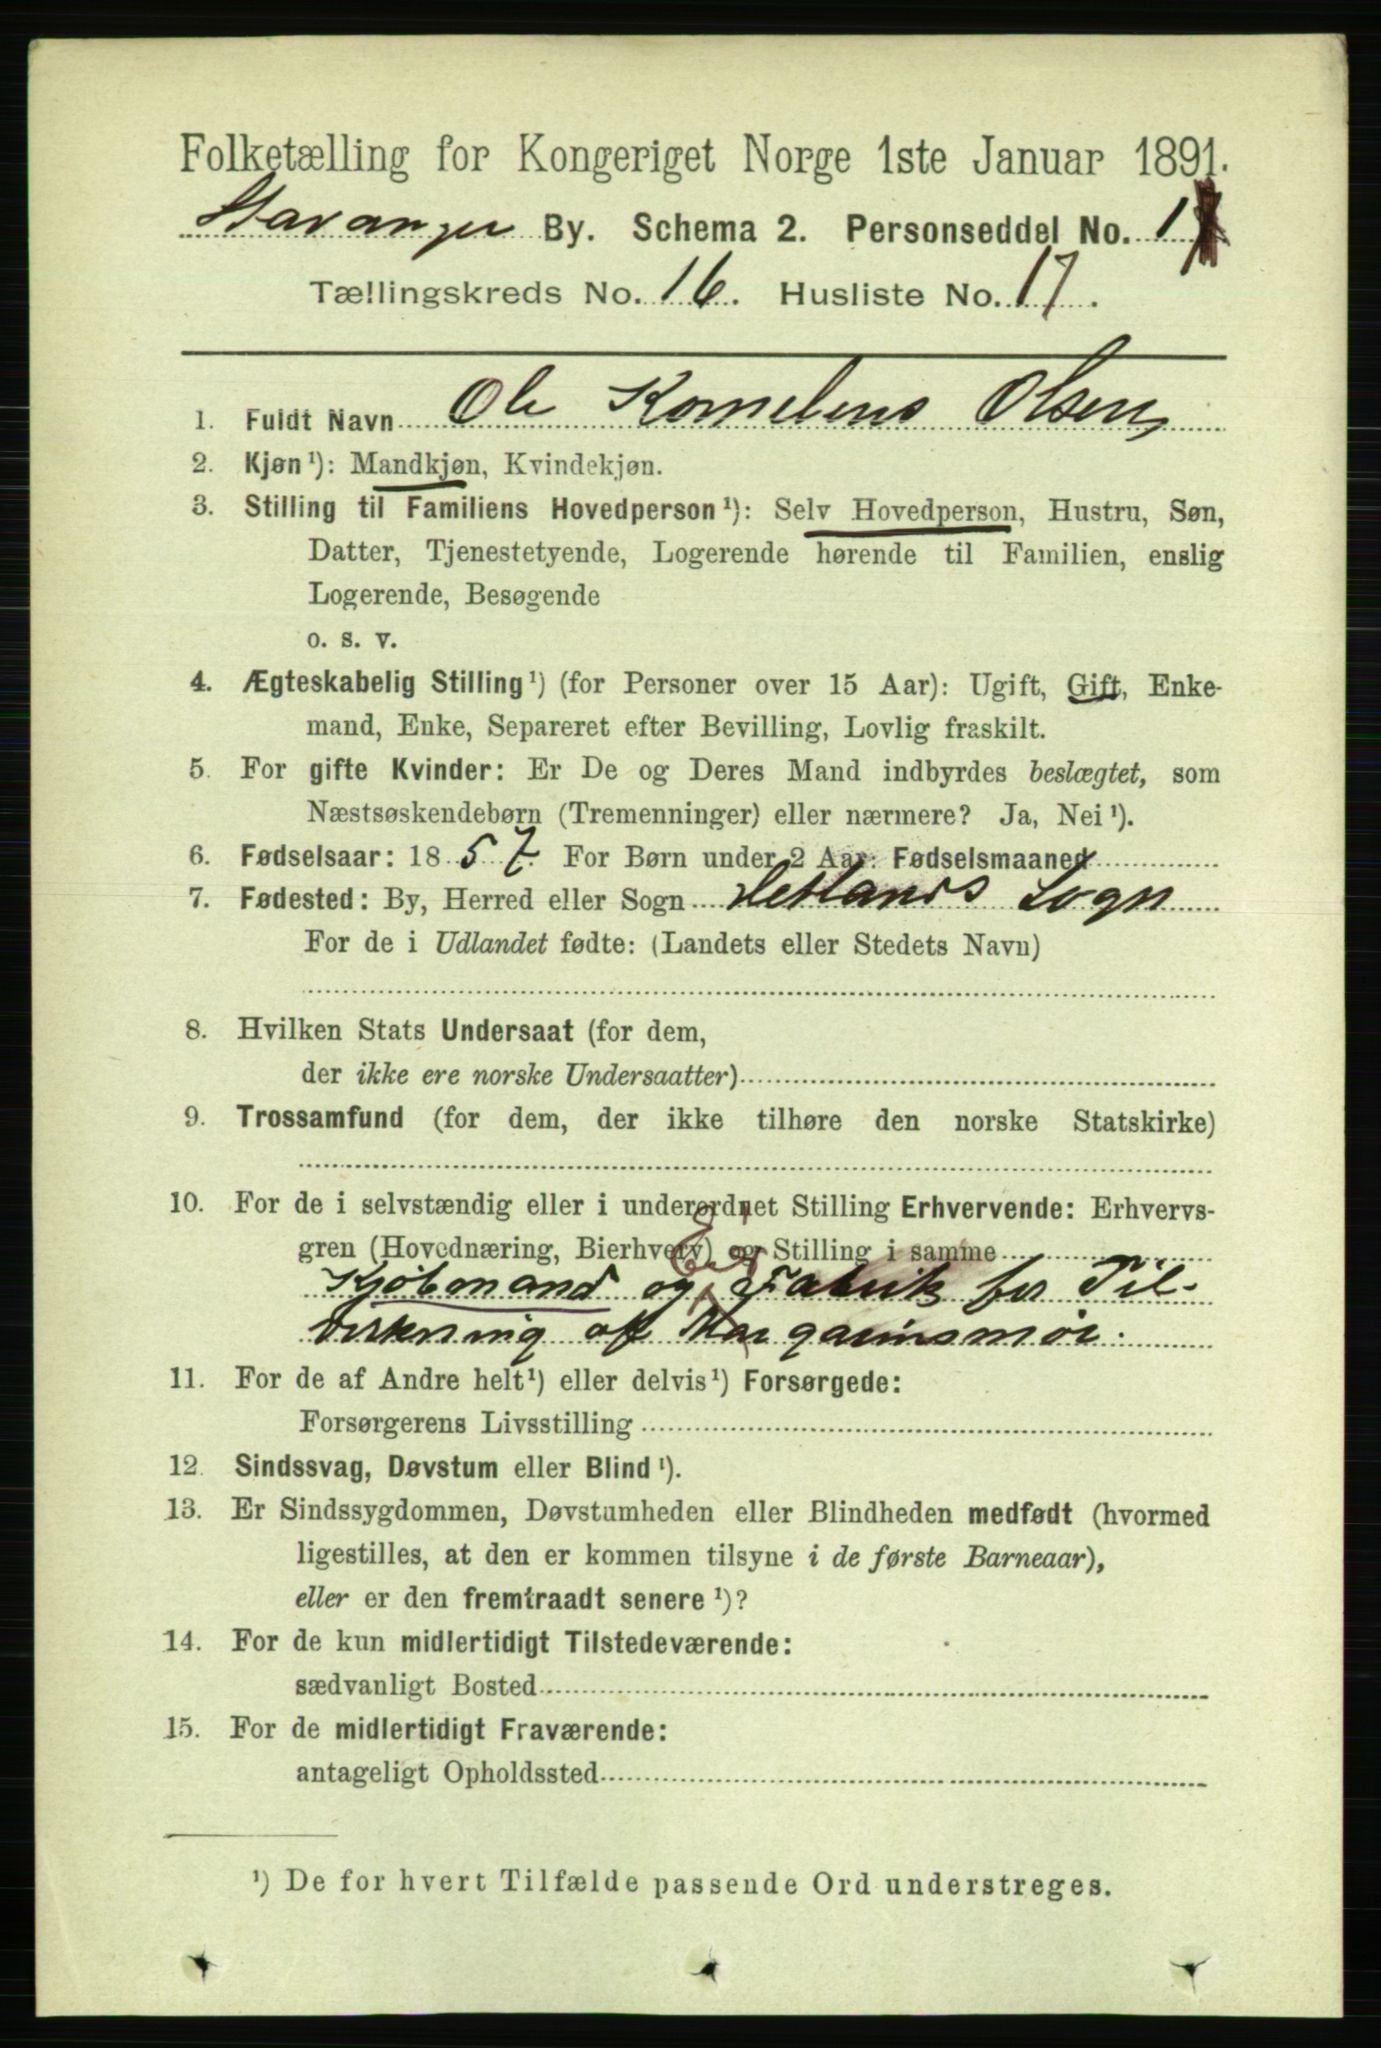 Folketælling for Kongeriget Norge 1ste Januar 1891.
Stavanger By. Schema 2. Personseddel No. 1
Tællingskreds No. 16. Husliste No. 17.
1. Fuldt Navn Ole Kornelius Olsen,
2. Kjøn ¹): Mandkjøn, Kvindekjøn.
3. Stilling til Familiens Hovedperson ¹): Selv Hovedperson, Hustru, Søn,
Datter, Tjenestetyende, Logerende hørende til Familien, enslig
Logerende, Besøgende
o. s. v.
4. Ægteskabelig Stilling ¹) (for Personer over 15 Aar): Ugift, Gift, Enke-
mand, Enke, Separeret efter Bevilling, Lovlig fraskilt.
5. For gifte Kvinder: Er De og Deres Mand indbyrdes beslægtet, som
Næstsøskendebørn (Tremenninger) eller nærmere? Ja, Nei ¹).
6. Fødselsaar: 1857. For Børn under 2 Aar: Fødselsmaaned
7. Fødested: By, Herred eller Sogn Hetlands Sogn
For de i Udlandet fødte: (Landets eller Stedets Navn)
8. Hvilken Stats Undersaat (for dem,
der ikke ere norske Undersaatter)
9. Trossamfund (for dem, der ikke tilhøre den norske Statskirke)
10. For de i selvstændig eller i underordnet Stilling Erhvervende: Erhvervs-
gren (Hovednæring, Bierhverv) og Stilling i samme
Kjøbmand og Fabrik for Til-
virkning af Margarinsmør.
11. For de af Andre helt ¹) eller delvis ¹) Forsørgede:
Forsørgerens Livsstilling
12. Sindssvag, Døvstum eller Blind ¹).
13. Er Sindssygdommen, Døvstumheden eller Blindheden medfødt (hvormed
ligestilles, at den er kommen tilsyne i de første Barneaar),
eller er den fremtraadt senere ¹)?
14. For de kun midlertidigt Tilstedeværende:
sædvanligt Bosted
15. For de midlertidigt Fraværende:
antageligt Opholdssted
¹) De for hvert Tilfælde passende Ord understreges.